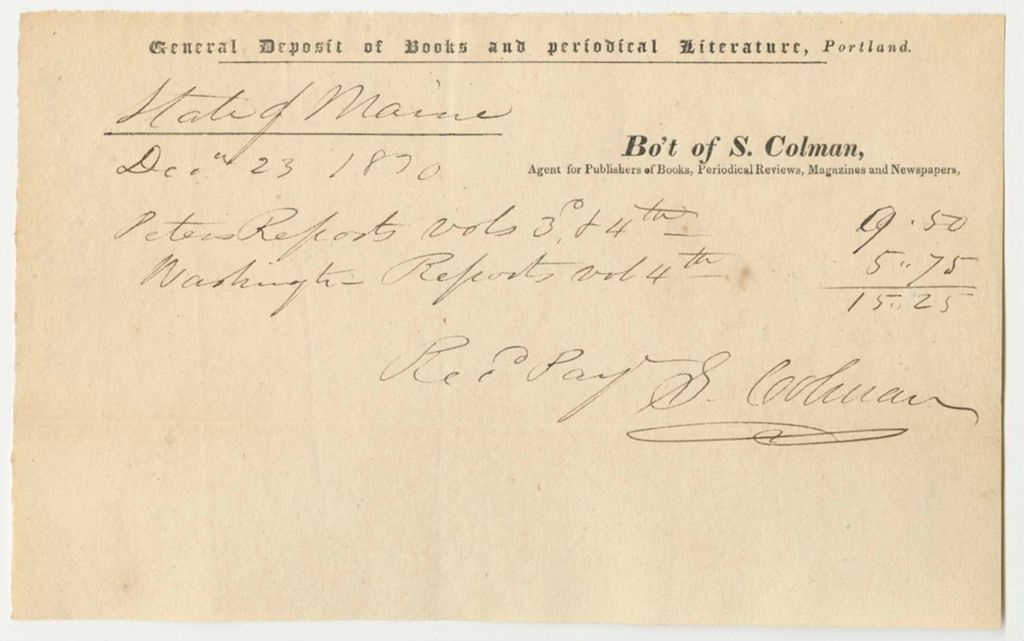 General Deposit of Books and periodical Literature, Portland.
State of Maine
Bo't of S. Colman,
Agent for Publishers of Books, Periodical Reviews, Magazines and Newspapers,
Dec. 23 1830
Peters Reports vols 3d & 4th 9.50
Washington Reports vol 4th 5.75
15.25
Rec'd Pay S. Colman